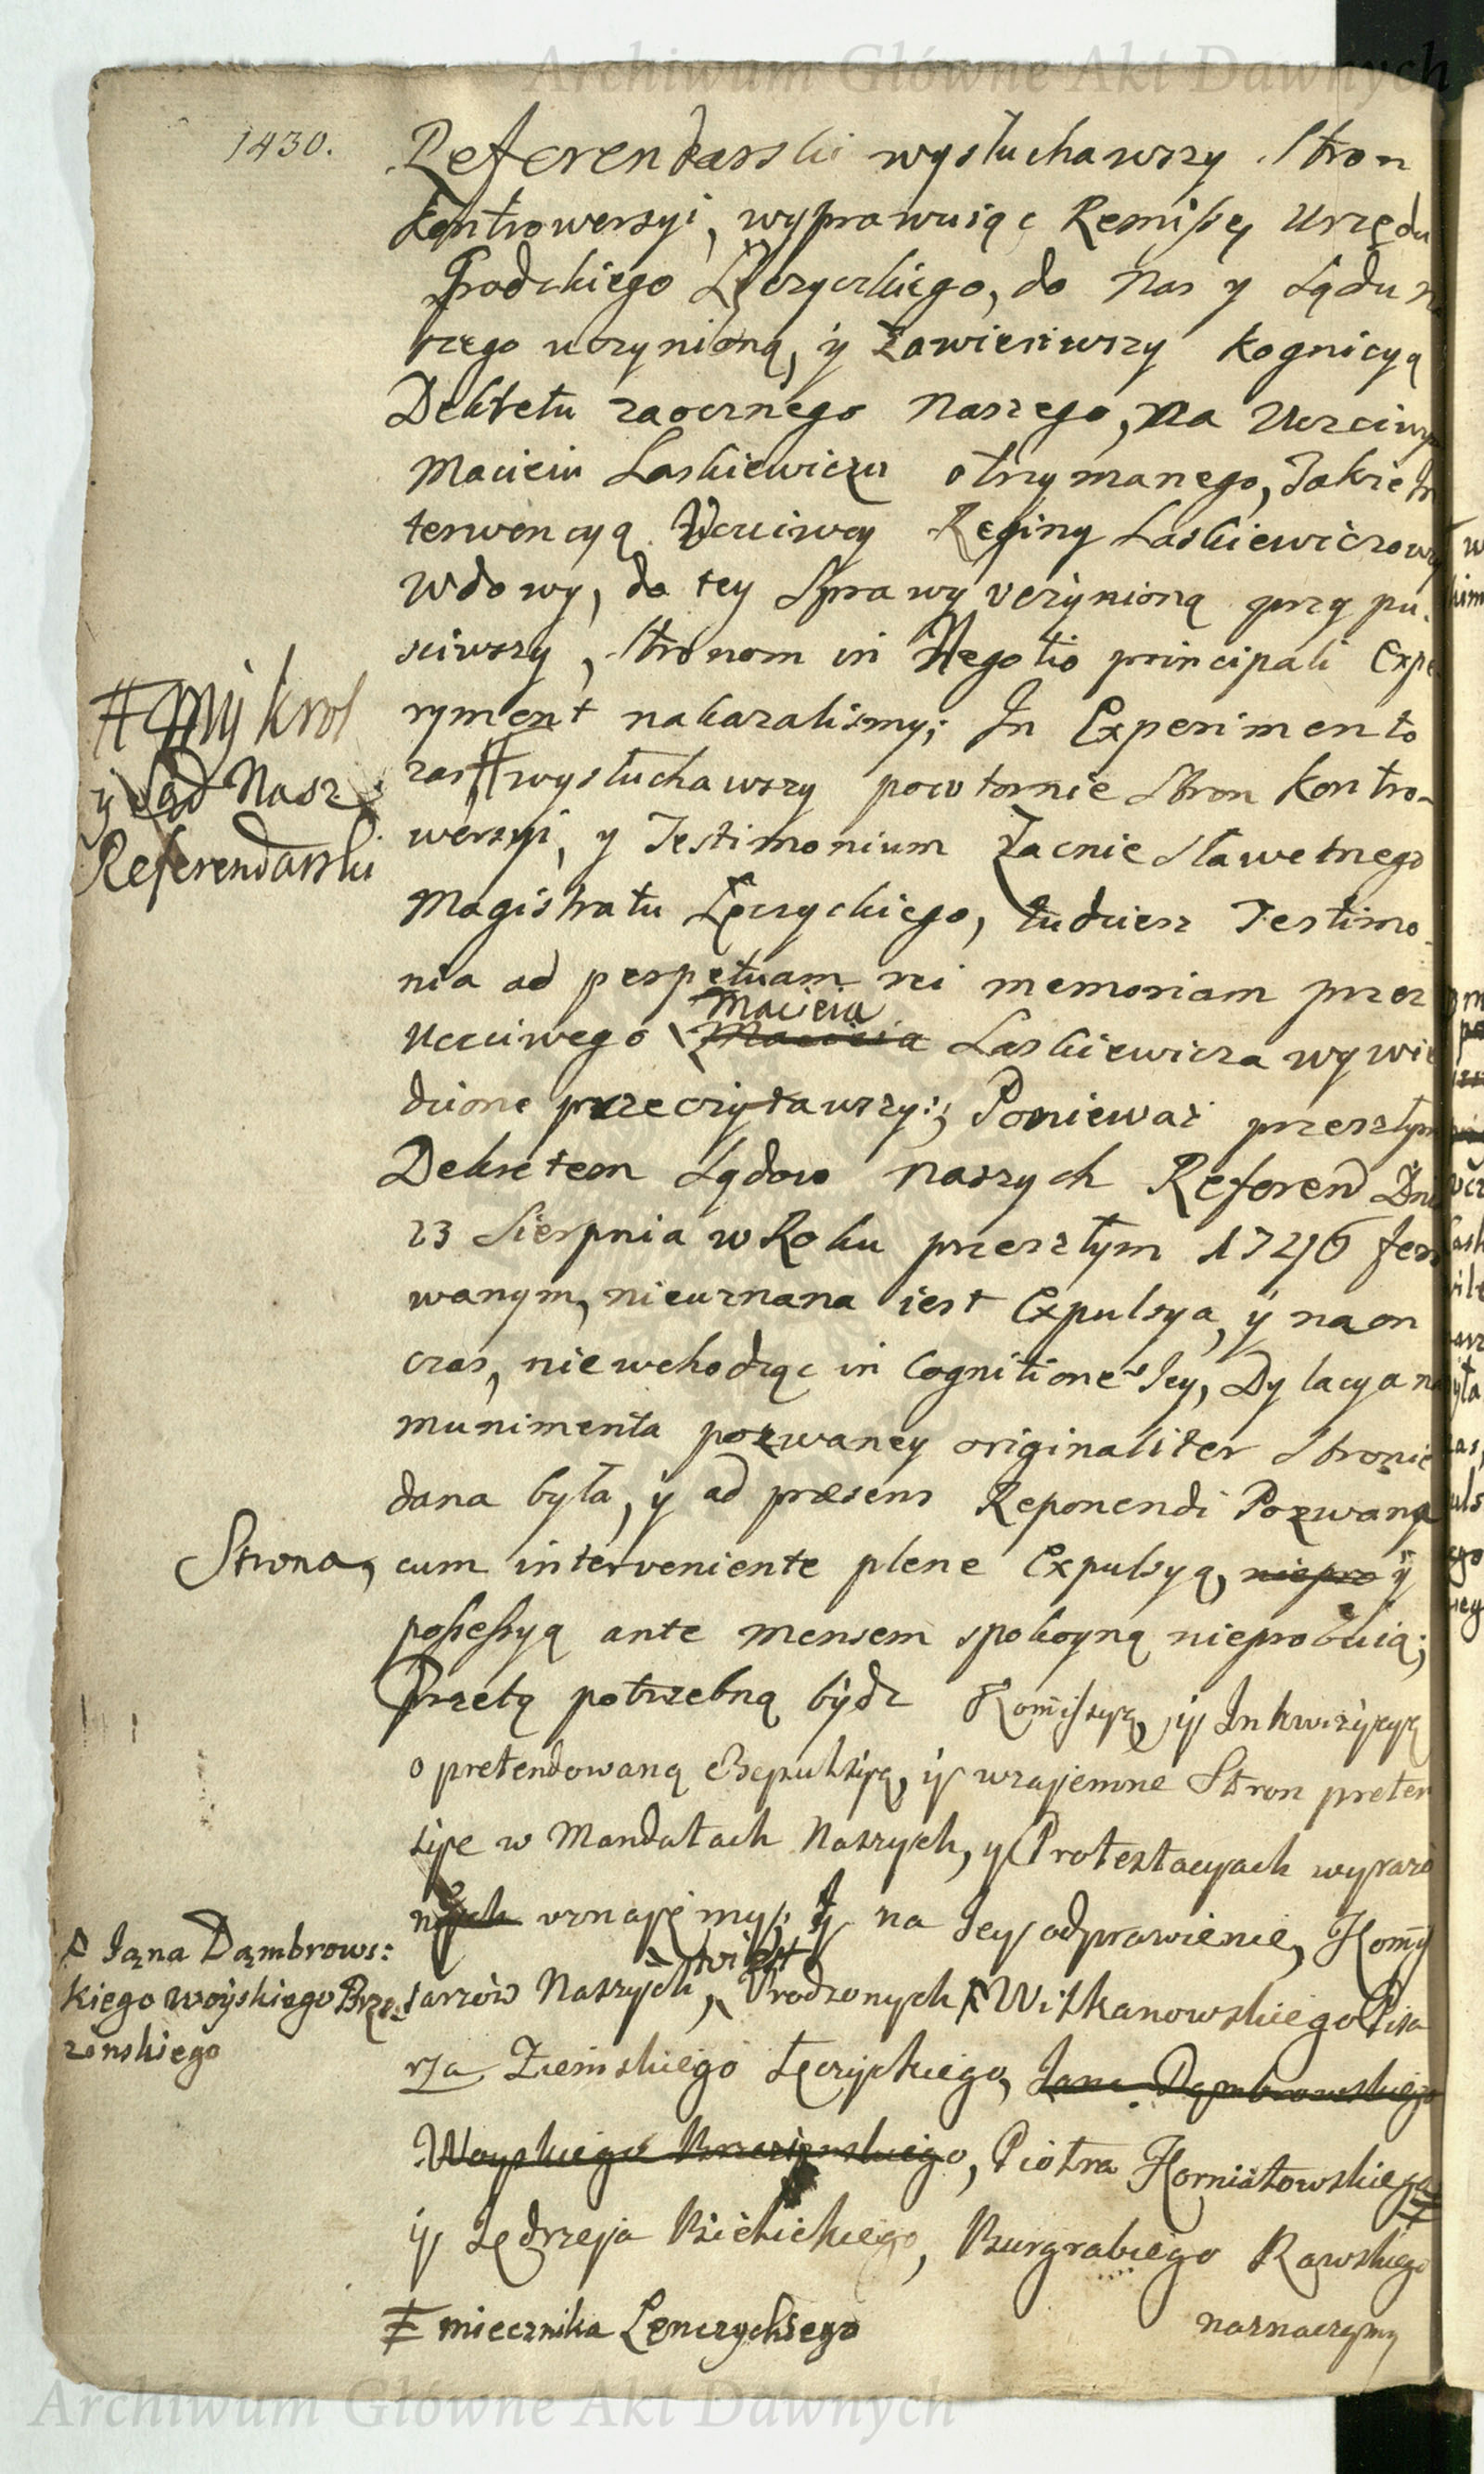 Archiwum Główne Akt Dawnych
1430.
Referendarski wysłuchawszy Stron
kontrowersyi, wyprawuiąc Remissę Urzędu
Grodzkiego Łęczyckiego, do Nas y Sądu na
szego uczynioną, y zawiesiwszy kognicyą
Dekretu zaocznego Naszego, na Uczciwym
Macieiu Laskiewiczu otrzymanego, Takze In
terwencyą Uczciwey Reginy Laskiewiczowy
Wdowy, do tey Sprawy uczynioną przypu-
sciwszy, Stronom in Negotio principali Expe
ryment nakazalismy; In Experimento
zas # wysłuchawszy powtornie Stron Kontro-
# My Krol
y Sąd Nasz
Referendarski
wersyi, y Testimonium Zacnie Sławetnego
Magistratu Łęczyckiego, tudziesz Testimo-
nia ad perpetuam rei memoriam przez
Macieia
Uczciwego Macieia Laskiewicza wywie
dzione przeczytawszy; Poniewaz przeszłym
Dekretem Sądow Naszych Referend Dnia
23 Sierpnia w Roku przeszłym 1746 fero
wanym, nieuznana iest Expulsya, y na on
czas, niewchodząc in Cognitione Jey, Dylacya na
munimenta pozwaney originaliter Stronie
dana była, y ad præsens Reponendi Pozwana
Strona, cum interveniente plene Expulsyą, niepro y
possessyą ante mensem spokoyną nieprobuią;
Przetą potrzebną bydz Komissyą, y Inkwizycyą
o pretendowaną Expulsyą, y wzajemne Stron preten
sye w Mandatach Naszych, y Protestacyach wyrazo
nych uznajemy; y na Jey odprawienie, Kommis
sarzow Naszych, Urodzonych Witkanowskiego Pisa
# Jana Dąmbrows:
kiego Woyskiego Brze-
zinskiego
rza Ziemskiego Łęczyckiego, Jana Dąmbrowskiego
Woyskiego Brzezinskiego, Piotra Korniatowskiego #
y Jędrzeja Bielickiego, Burgrabiego Rawskiego
# miecznika Lenczyckiego
naznaczamy
Archiwum Główne Akt Dawnych